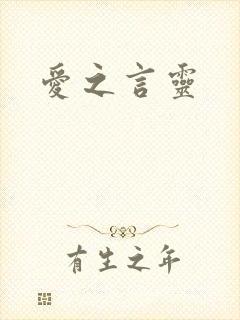 愛之言靈
有生之年